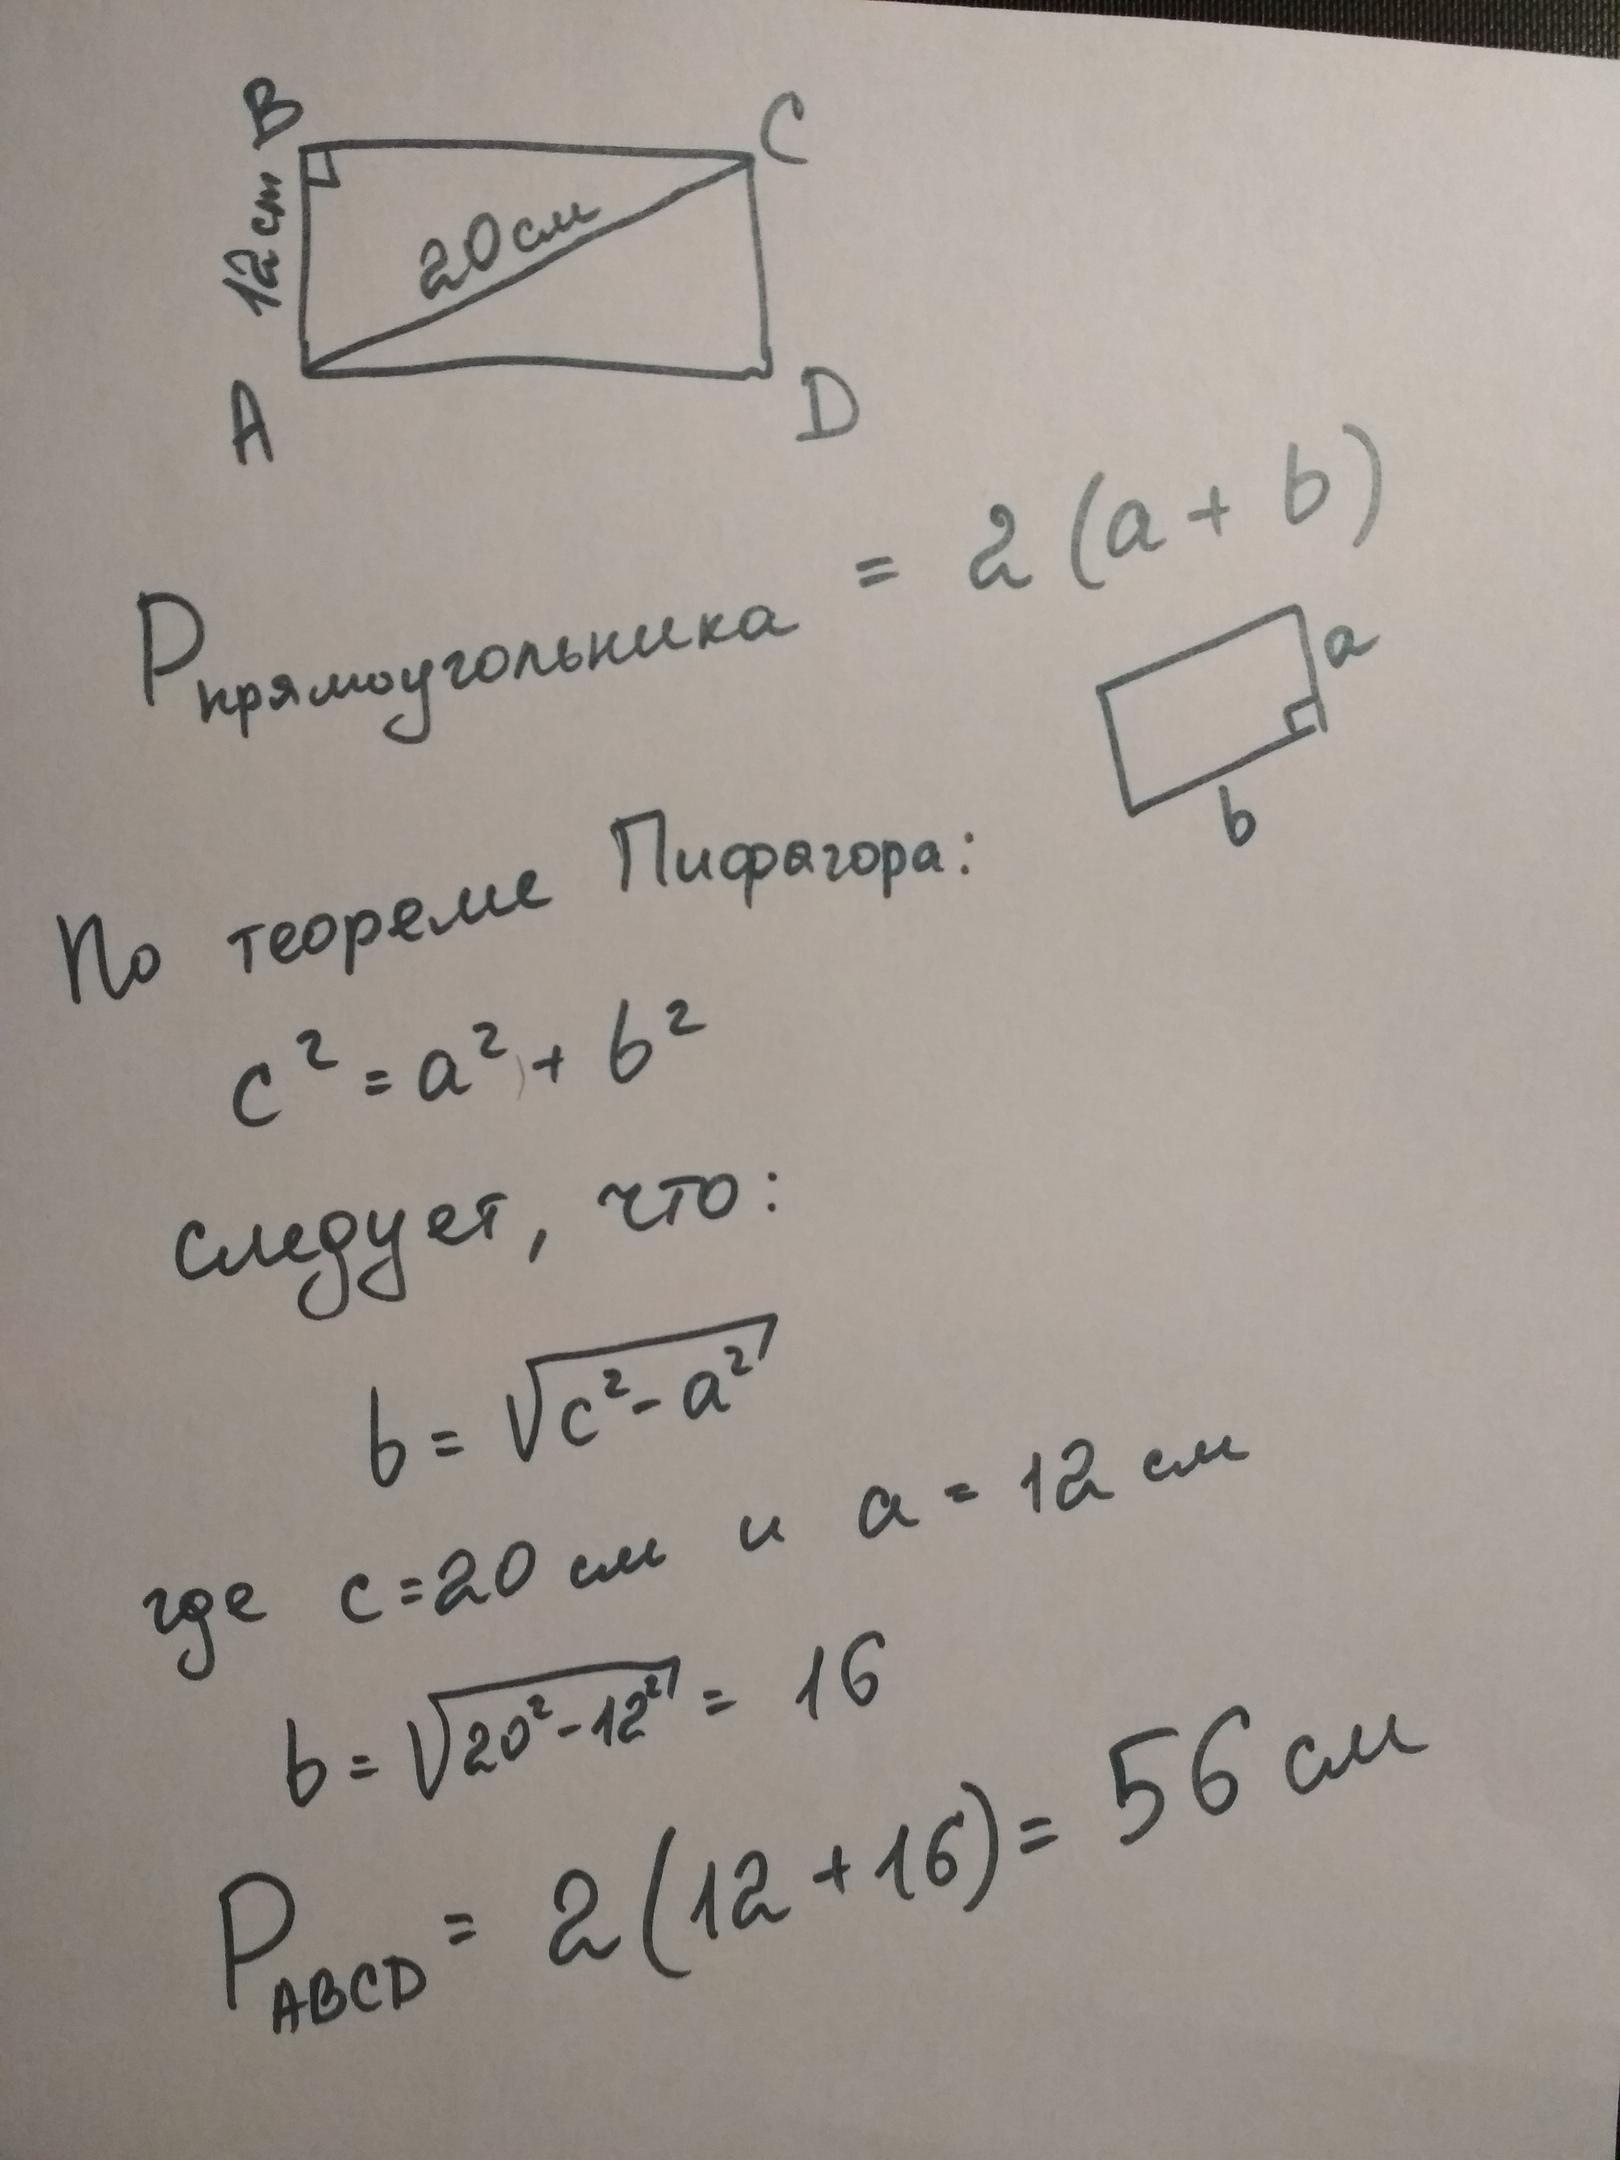 B
C
12 cm
20 см
A
D
Pпрямоугольника = 2 (a + b)
a
b
По теореме Пифагора:
c² = a² + b²
следует, что:
b = √c² - a²
где c = 20 см и a = 12 см
b = √20² - 12² = 16
P_ABCD = 2 (12 + 16) = 56 см